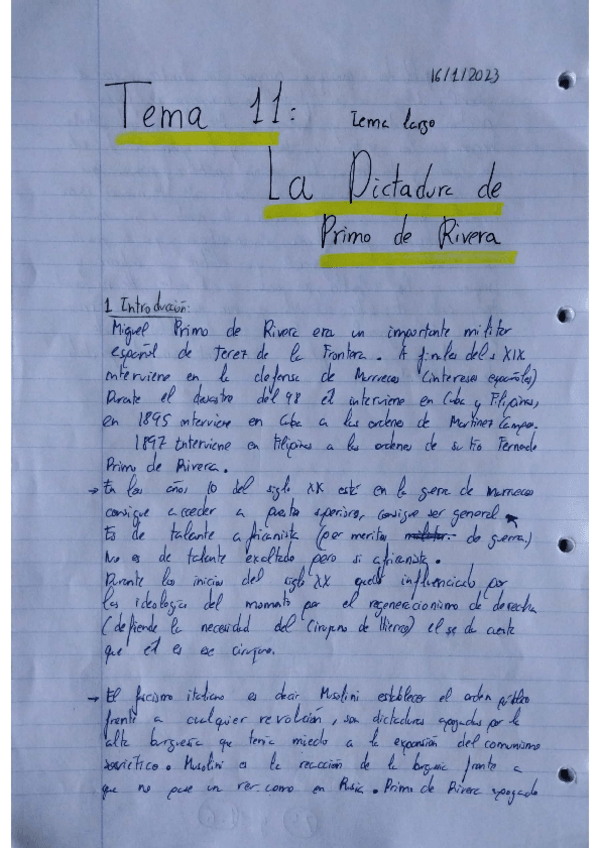 16/1/2023
Tema 11: Tema largo
La Dictadura de
Primo de Rivera
1 Introducción:
Miguel Primo de Rivera era un importante militar
español de Jerez de la Frontera. A finales del s XIX
interviene en la defensa de Marruecos (intereses españoles)
Durante el desastre del 98 él interviene en Cuba y Filipinas,
en 1895 interviene en Cuba a las ordenes de Martínez Campos.
1897 Interviene en Filipinas a las ordenes de su tío Fernando
Primo de Rivera.
→ En los años 10 del siglo XX está en la guerra de marruecos
consigue acceder a puestos superiores, consigue ser general
Es de talante africanista (por meritos de guerra)
No es de talante exaltado pero si africanista.
Durante los inicios del siglo XX queda influenciado por
las ideologías del momento por el regeneracionismo de derecha
(defiende la necesidad del Cirujano de Hierro) el se da cuenta
que él es ese cirujano.
→ El fascismo italiano es decir Musolini establecer el orden público
frente a cualquier revolución, son dictaduras apoyadas por la
alta burguesía que tenía miedo a la expansión del comunismo
soviético. Musolini es la reacción de la burguesía frente a
que no pase un rev. como en Rusia. Primo de Rivera apoyado